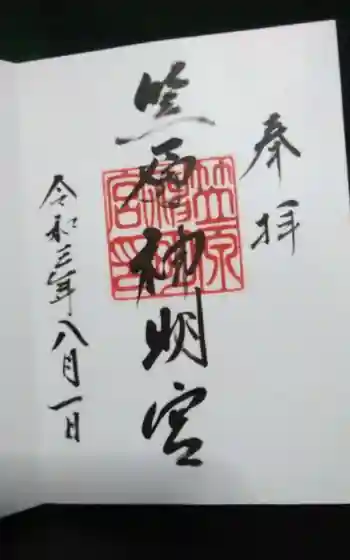 奉拝
笠原神明宮
令和三年八月一日
笠原
神明
宮印